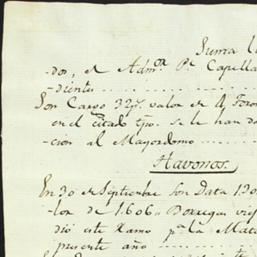 Suma
dos, el Adm.or P.r Capella
diente
Son Cargo 32 p.s valor de 4
en el citado tpo. se le han da
cion al Mayordomo
Havonos.
En 30 de Septiembre son Data 130
lor de 1.606
dió este Ramo p.a la Mata
presente año